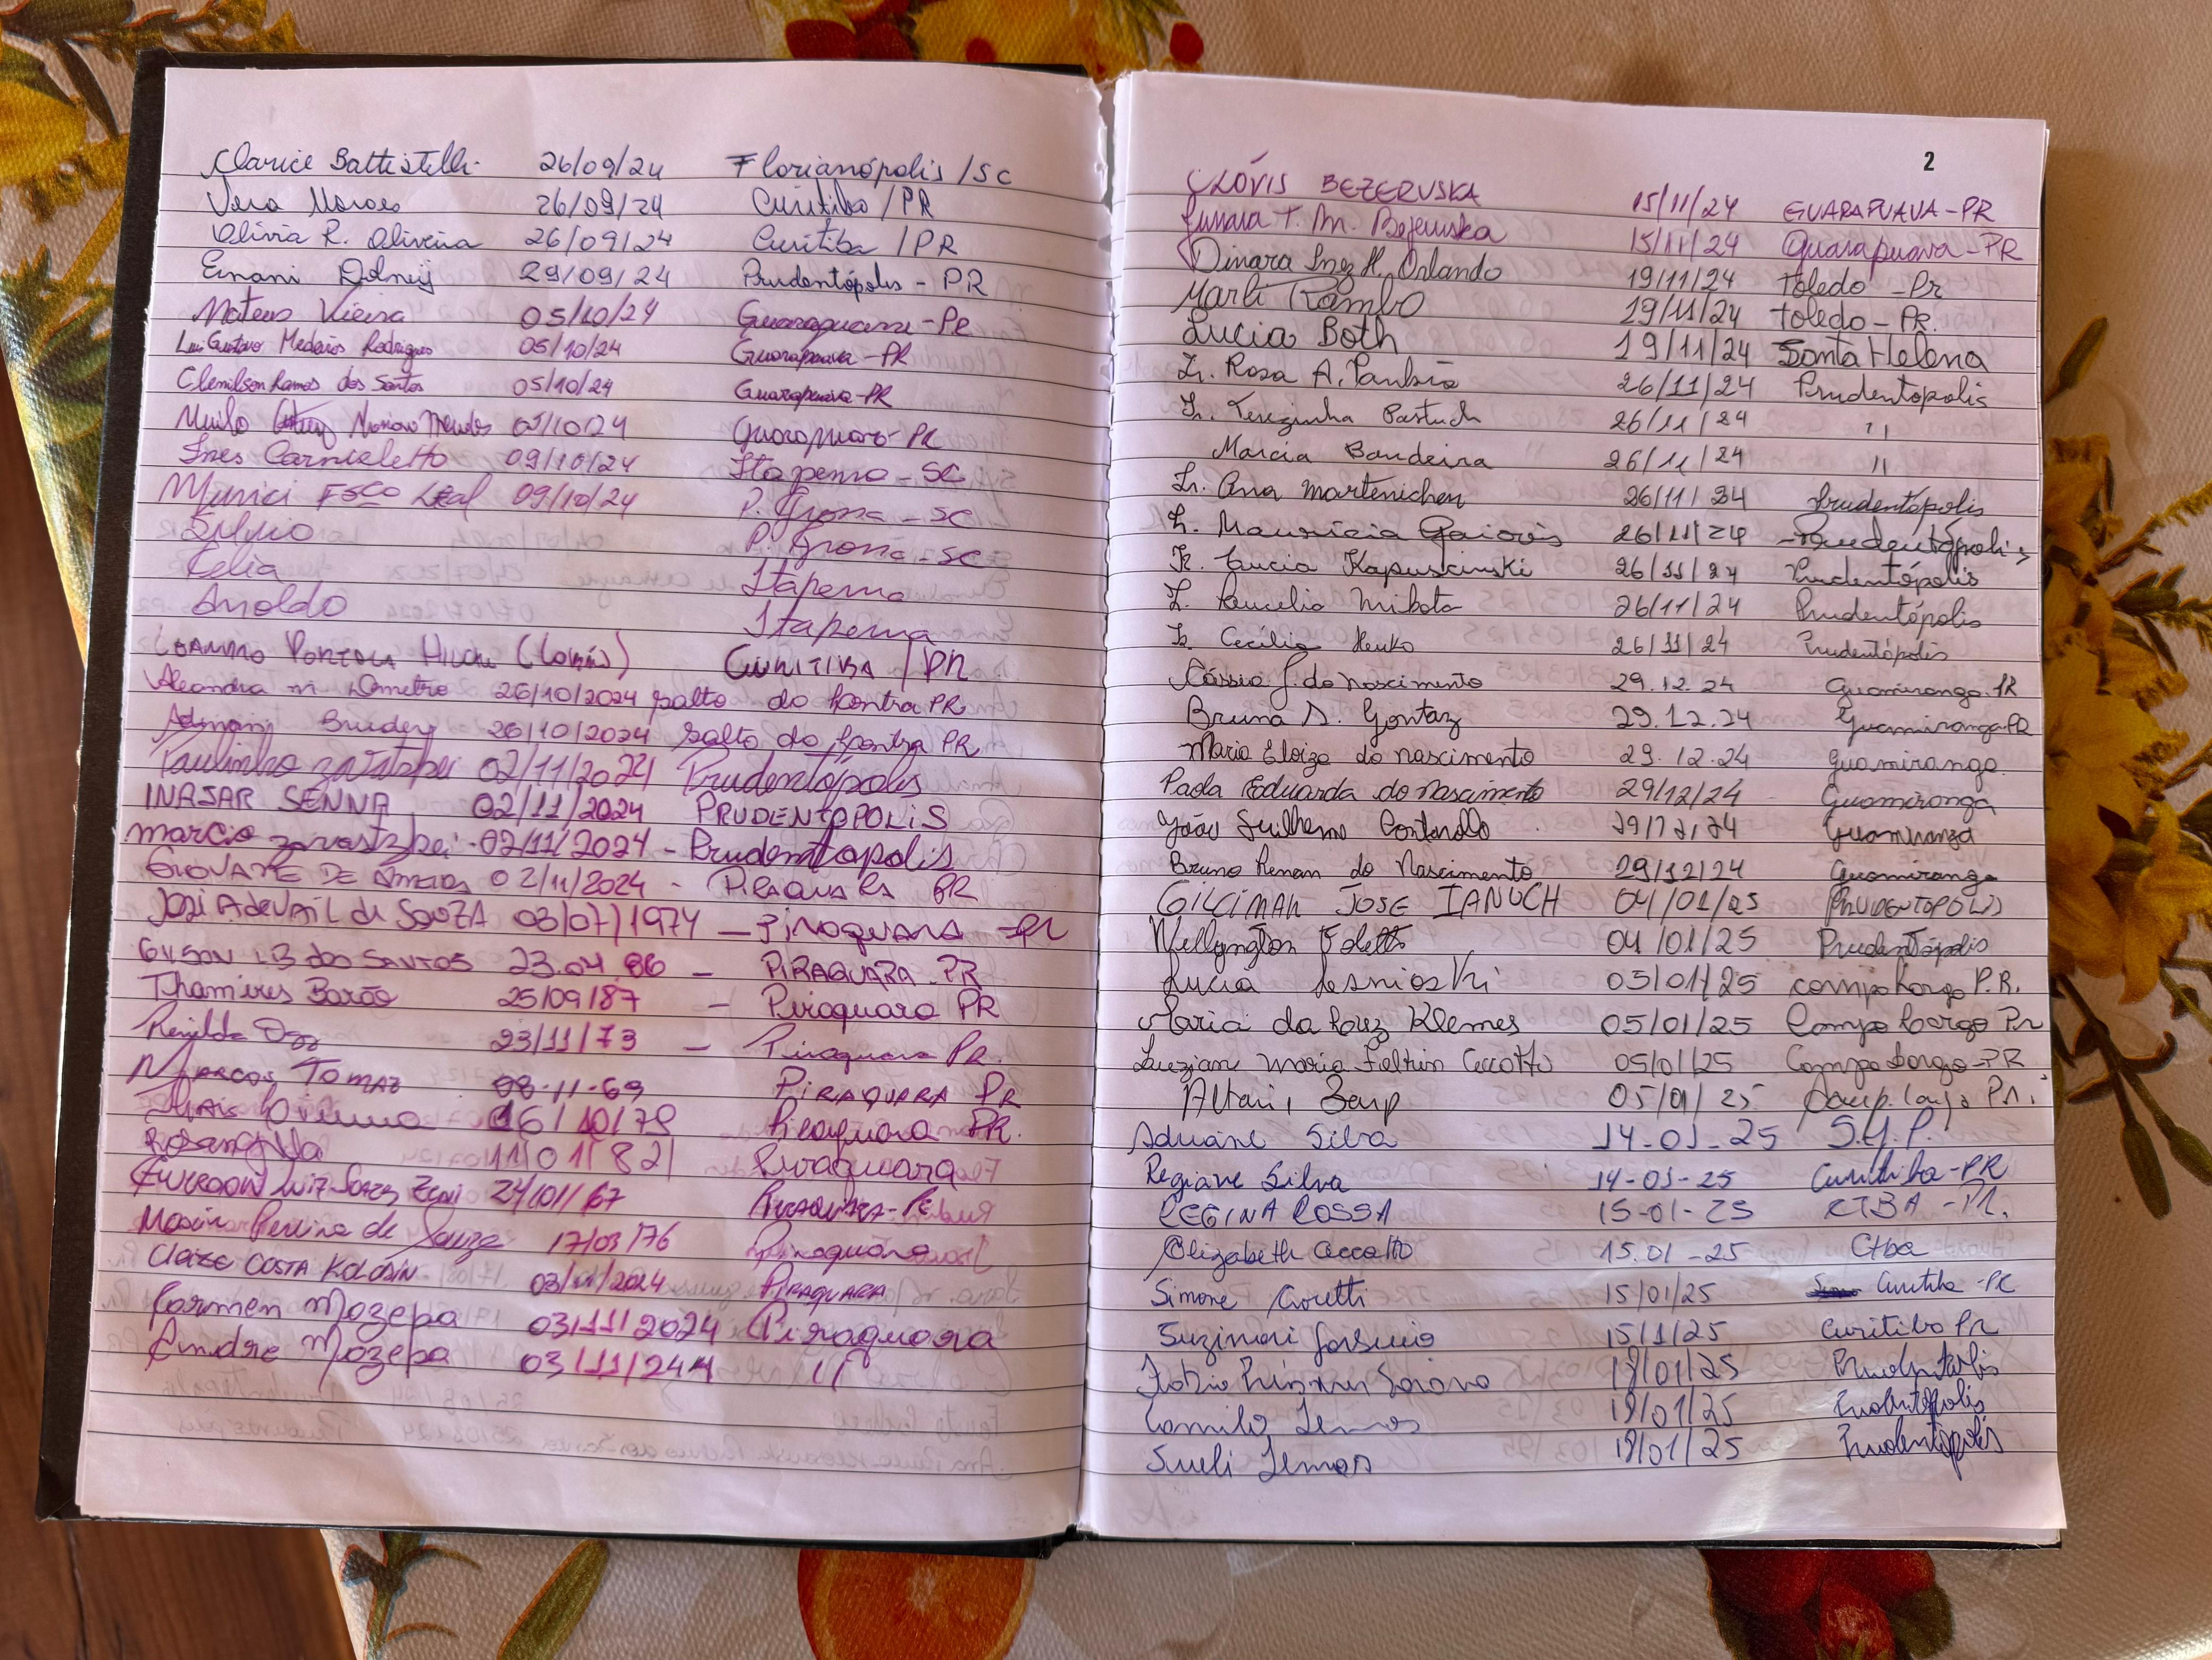 Clarice Battistelli 26/09/24 Florianópolis /SC
Vera Moraes 26/09/24 Curitiba /PR
Olivia R. Oliveira 26/09/24 Curitiba /PR
Ernani 29/09/24 Prudentópolis - PR
Mateus Vieira 05/10/24 Guarapuava - PR
Luis Gustavo Medeiros Rodrigues 05/10/24 Guarapuava - PR
Clemilson Ramos dos Santos 05/10/24 Guarapuava - PR
Murilo Mendes 05/10/24 Guarapuava PR
Ines Carnieletto 09/10/24 Itapema - SC
Murici Fsco Leal 09/10/24 P. Grossa - SC
Silvio P. Grossa - SC
Celia Itapema
Arnoldo Itapema
CURITIBA / PR
m Demetro 26/10/2024 Salto do Lontra PR
26/10/2024 Salto do Lontra PR
Paulinho 02/11/2024 Prudentópolis
INAJAR SENNA 02/11/2024 PRUDENTOPOLIS
marcio 02/11/2024 - Prudentopolis
GIOVANE DE 02/11/2024 - PR
de SOUZA 03/07/1974 - Piraquara - PR
dos SANTOS 23.04.86 - PIRAQUARA - PR
Thamires Barão 25/09/87 - Piraquara PR
23/11/73 - Piraquara PR.
MARCOS TOMAZ 08-11-69 PIRAQUARA PR
16/10/78 Piraquara PR.
Rosangela 11/01/82 Piraquara
Luiz 24/01/67
Pereira de Souza 17/03/76 Piraquara
COSTA KOLODIN PIRAQUARA
Carmen Mozepa 03/11/2024 Piraquara
Andre Mozepa 03/11/24 11
2
CLÓVIS BEZERUSKA 15/11/24 GUARAPUAVA - PR
T. M. Bezeruska 15/11/24 Guarapuava - PR
Dinara Inez H. Orlando 19/11/24 Toledo - Pr
Marli Rambo 19/11/24 toledo - PR.
Lucia Both 19/11/24 Santa Helena
Ir. Rosa A. 26/11/24 Prudentópolis
Ir. Terezinha Pastuch 26/11/24 11
Marcia Bandeira 26/11/24 11
Ir. Ana Martenichen 26/11/24 Prudentópolis
Ir. Mauricia 26/11/24 - Prudentópolis
Ir. Lucia Kapuscinski 26/11/24 Prudentópolis
Ir. 26/11/24 Prudentópolis
Ir. Cecília Henko 26/11/24 Prudentópolis
Cássia J. do Nascimento 29.12.24 Guamiranga. PR
Bruna S. Gontaz 29.12.24 Guamiranga PR
Maria Eloiza do nascimento 29.12.24 Guamiranga
Paola Eduarda do Nascimento 29/12/24 Guamiranga
João Guilherme 29/12/24 Guamiranga
Bruno Renan do Nascimento 29/12/24 Guamiranga
GILCIMAR JOSE IANUCH 04/01/25 PRUDENTOPOLIS
Wellyngton 04/01/25 Prudentópolis
Lucia Lesnioski 05/01/25 campo Largo P.R.
Maria da Luz Klemes 05/01/25 Campo Largo Pr
Luziane Maria Feltrin Ceccatto 05/01/25 Campo Largo - PR
Altair 05/01/25
Adriane Silva 14-01-25 S.J.P.
Regiane Silva 14-01-25 Curitiba - PR
REGINA ROSSA 15-01-25 CTBA - PR.
Elizabeth Ceccatto 15.01-25 Ctba
Simone 15/01/25 Curitiba - PR
Suzimari 15/1/25 Curitiba PR
18/01/25
Camila Lemos 18/01/25 Prudentópolis
Sueli Lemos 18/01/25 Prudentópolis